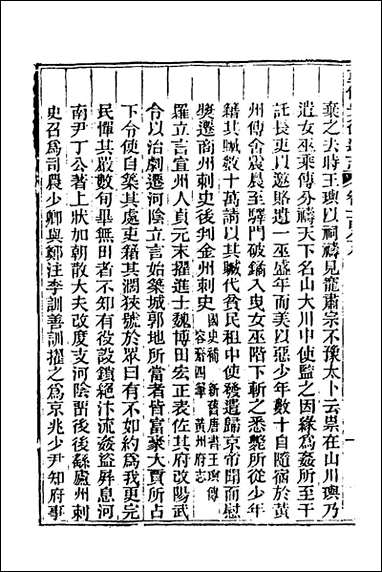 棄之去時王璵以祠禱見寵肅宗不豫太卜云祟在山川璵乃
遣女巫乘傳分禱天下名山大川中使監之因緣為姦所至干
託長吏以邀賂遺一巫盛年而美以惡少年數十自隨宿於黃
州傳舍震晨至驛門破鐍入曳女巫階下斬之悉斃所從少年
籍其贓數十萬請以其贓代貧民租中使發遣歸京帝聞而慰
獎遷商州刺史後判金州刺史
國史補 新舊唐書王璵傳
容齋四筆 黃州府志
羅立言宣州人貞元末擢進士魏博田宏正表佐其府改陽武
令以治劇遷河陰立言始築城郭地所當者皆富豪大賈所占
下令使自築其處吏籍其濶狹號於眾曰有不如約為我更完
民憚其嚴數旬畢無田者不知有役設鎖絕汴流姦盜屏息河
南尹丁公著上狀加朝散大夫改度支河陰留後後繇廬州刺
史召為司農少卿與鄭注李訓善訓擢之為京兆少尹知府事